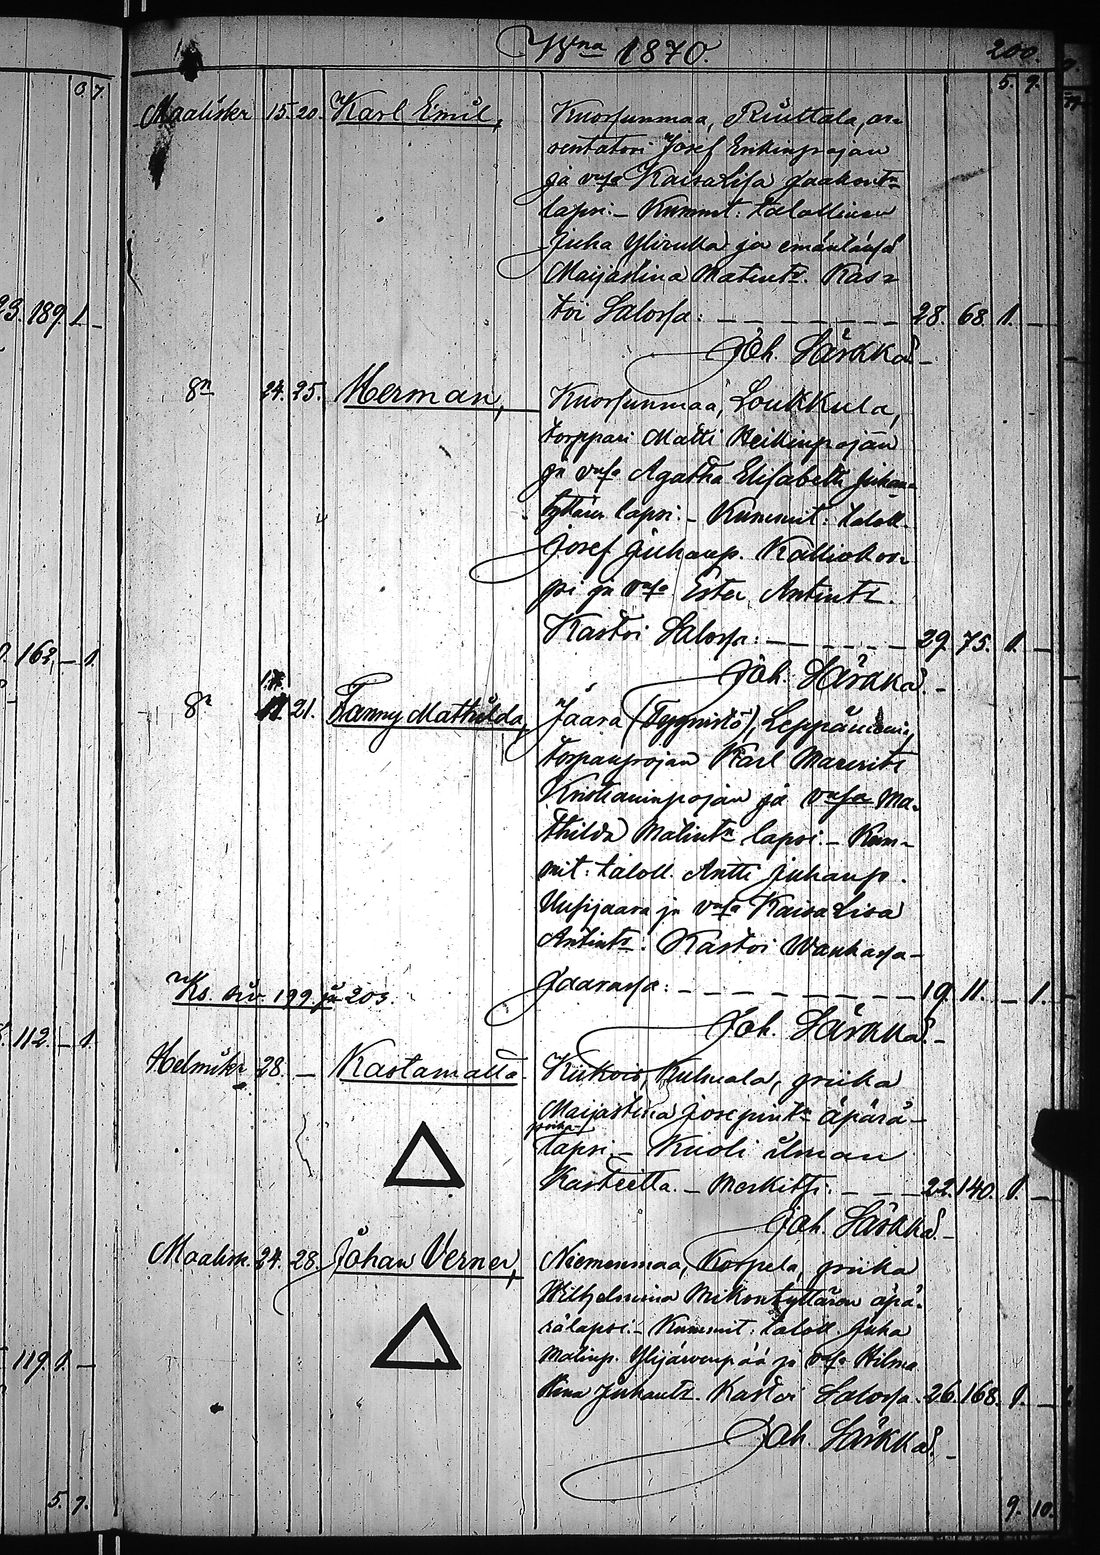 W:na 1870. 200.
5. 7.
Maalisk 15. 20. Karl Emil, Kuorsunmaa, Riuttala, ar-
rentatori Josef Erkinpojan
ja vaſa Kaisa Lisa Jaakont:n
lapsi. – Kummit: talollinen
Juha Yliruka ja emäntänsä
Maijastina Matint:r. Kas-
toi Salossa: 28. 68. 1. –
Joh. Särkkä. –
8n 24. 25. Herman, Kuorsunmaa, Loukkula,
torppari Matti Heikinpojan
ja vaſa Agatha Elisabeth Juhan-
tyttären lapsi. – Kummit: taloll.
Josef Juhanp. Kalliokos-
ki ja vaſa Ester Antintr.
Kastoi Salossa: 29. 75. 1. –
Joh. Särkkä. –
8n 21. Fanny Mathilda, Jaara (Tyynistö), Leppäniemi,
torpanpojan Karl
Kristianinpojan ja vaſa Ma-
thilda Matint:n lapsi. – Kum-
mit: taloll. Antti Juhanp.
Uusijaara ja vaſa Kaisa Lisa
Antint:r. Kastoi Wanhassa-
Jaarassa: 19. 11. – 1.
Ks. siv. 199 ja 203.
Joh. Särkkä. –
Helmik. 28. – Kastamatta. Kiikois, Kulmala, piika
Maijastina Josepint:n äpärä-
poika-
lapsi. – Kuoli ilman
Kasteetta. – Merkitsi: 22. 140. 1. –
Joh. Särkkä. –
Maalisk. 24. 28. Johan Verner, Niemenmaa, Korpela, piika
Wilhelmiina Mikontyttären äpä-
rälapsi. – Kummit: taloll. Juha
Matinp. Ylijärvenpää ja vaſa Hilma
Stina Juhantr. Kastoi Salossa. 26. 168. 1. –
Joh. Särkkä. –
9. 10.
0. 7.
23. 189. 1. –
163. – 1.
112. – 1.
119. 1. –
5. 7.